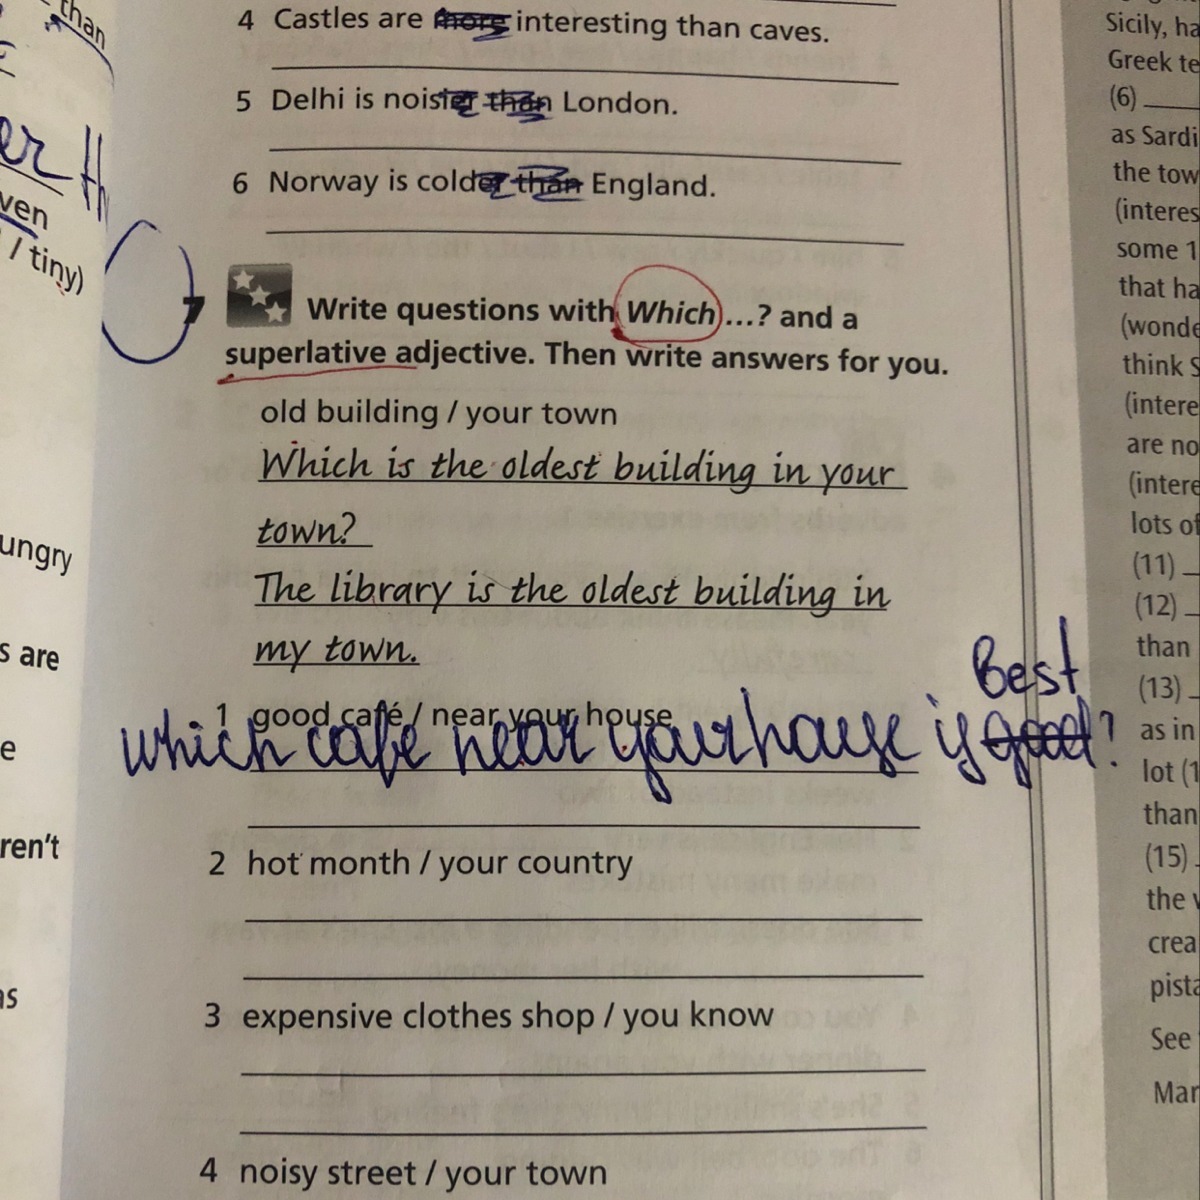 than
er th
ven
/ tiny)
ungry
s are
e
ren't
ns
4 Castles are more interesting than caves.
5 Delhi is noisier than London.
6 Norway is colder than England.
7 Write questions with Which ...? and a
superlative adjective. Then write answers for you.
old building / your town
Which is the oldest building in your
town?
The library is the oldest building in
my town.
Best
1 good café / near your house
which cafe near your house is good?
2 hot month / your country
3 expensive clothes shop / you know
4 noisy street / your town
Sicily, ha
Greek te
(6)
as Sardi
the tow
(interes
some 1
that ha
(wonde
think S
(intere
are no
(intere
lots of
(11)
(12)
than
(13)
as in
lot (1
than
(15)
the v
crea
pista
See
Mar